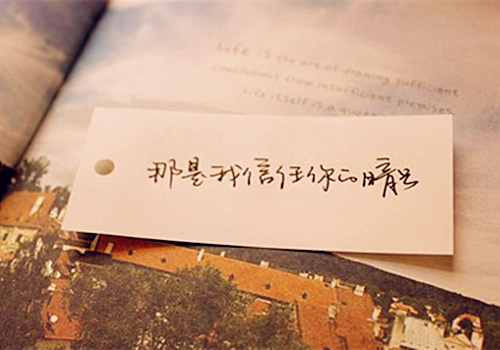 Life is the art of drawing sufficient
conclusions from insufficient premises
Life itself is a quo
那是我信任你的